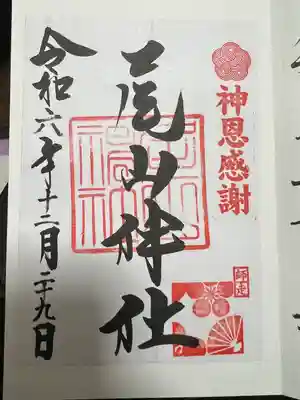 神恩感謝
尾山神社
令和六年十二月二十九日